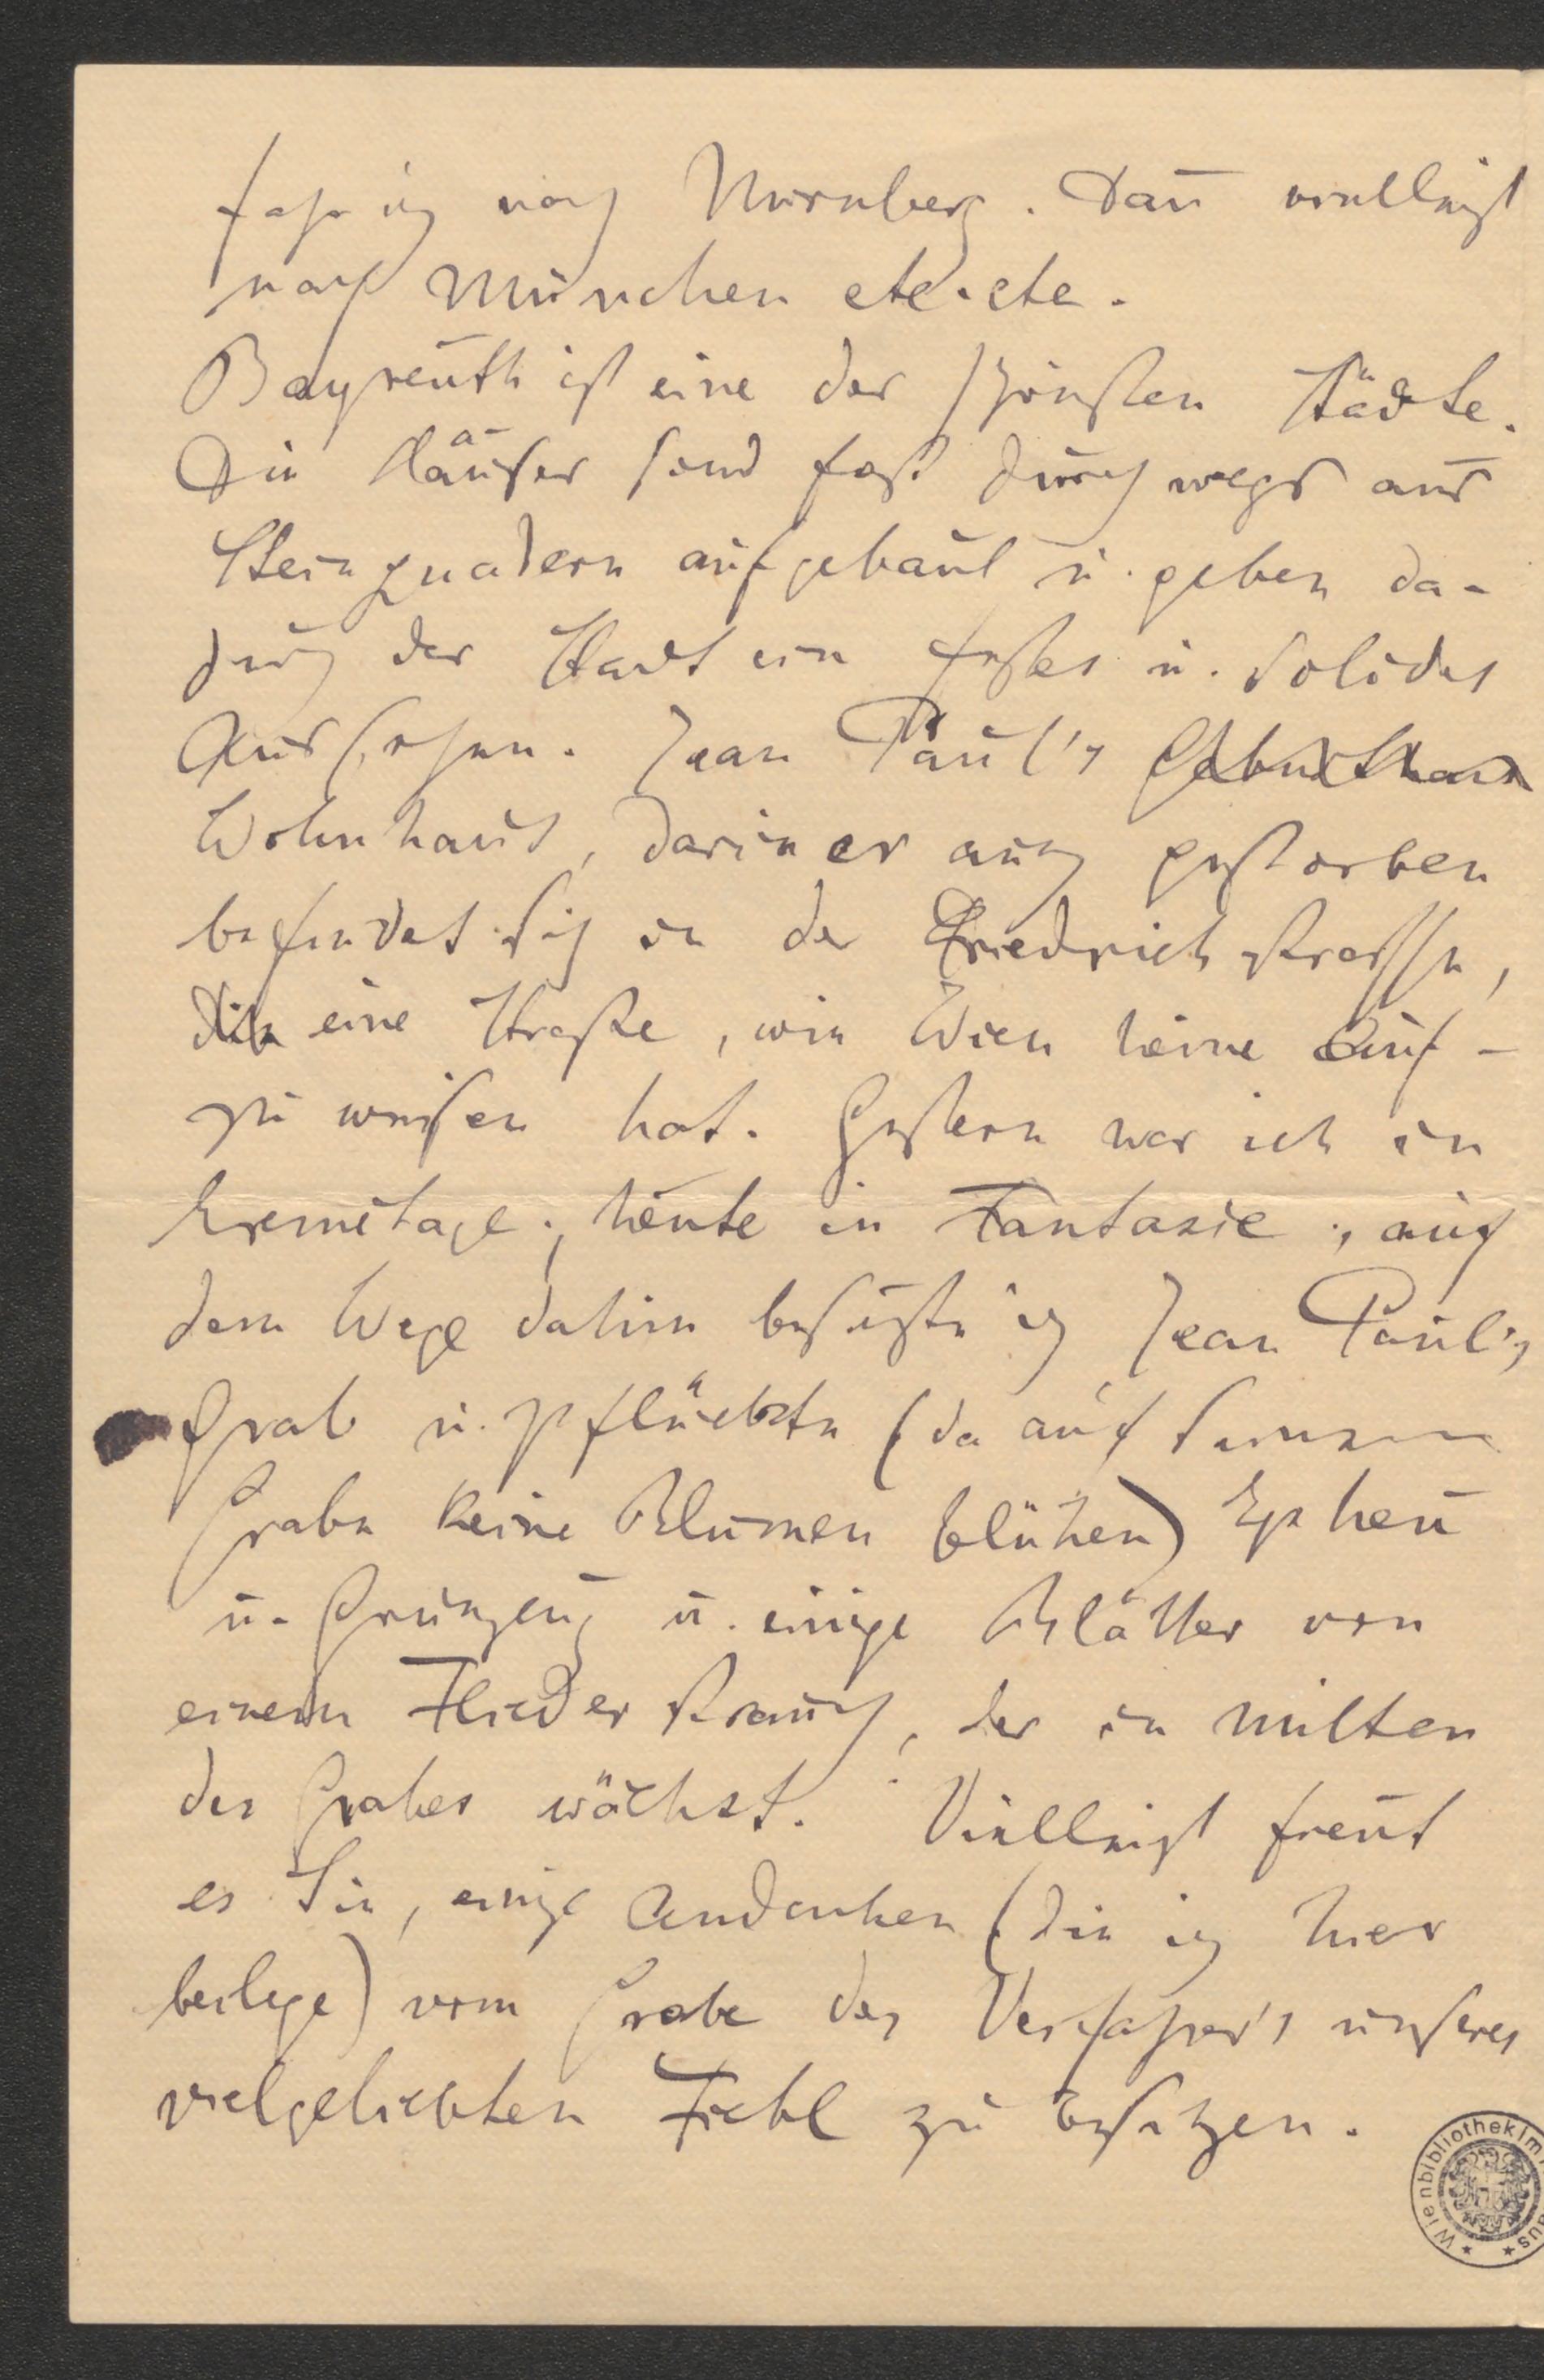 fahr ich nach Nürnberg. Dañ vielleicht
nach München etc. etc.
Bayreuth ist eine der schönsten Städte.
Die Häuser sind fast durchwegs aus
Steinquadern aufgebaut u. geben da-
durch der Stadt ein festes u. solides
Aussehen. Jean Paul's Geburtshaus
Wohnhaus, darin er auch gestorben
befindet sich in der Friedrichstrasse,
die eine Straße, wie Wien keine auf-
zu weisen hat. Gestern war ich in
Eremitage; heute in Fantasie; auf
dem Wege dahin besuchte ich Jean Paul's
Grab u. pflückte (da auf seinem
Grabe keine Blumen blühen) Epheu
u. Grünzeug u. einige Blätter von
einem Flieder strauch, der in mitten
des Grabes wächst. Vielleicht freut
es Sie, einige Andenken (die ich hier
beilege) vom Grabe des Verfasser's unseres
vielgeliebten Fiebl zu besitzen.
Wienbibliothek im